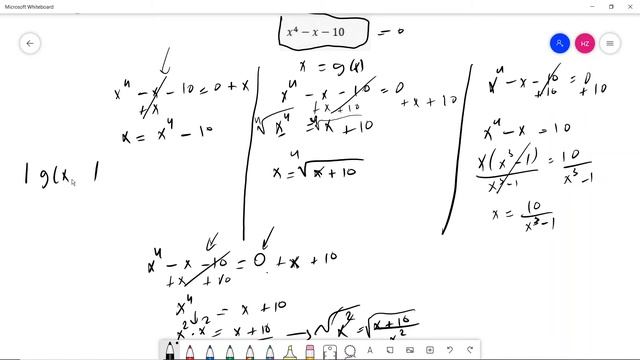 Microsoft Whiteboard
x⁴ − x − 10 = 0
HZ
x = g(x)
x⁴ − x − 10 = 0 + x
+x
x = x⁴ − 10
x⁴ − x − 10 = 0
+x +10 + x + 10
⁴√x⁴ = ⁴√x + 10
x = ⁴√x + 10
x⁴ − x − 10 = 0
+10 +10
x⁴ − x = 10
x(x³ − 1) / x³ − 1 = 10 / x³ − 1
x = 10 / x³ − 1
| g(x |
x⁴ − x − 10 = 0 + x + 10
+x +10
x⁴ = x + 10
x² · x² = x + 10 → √x² = √x + 10 / x²